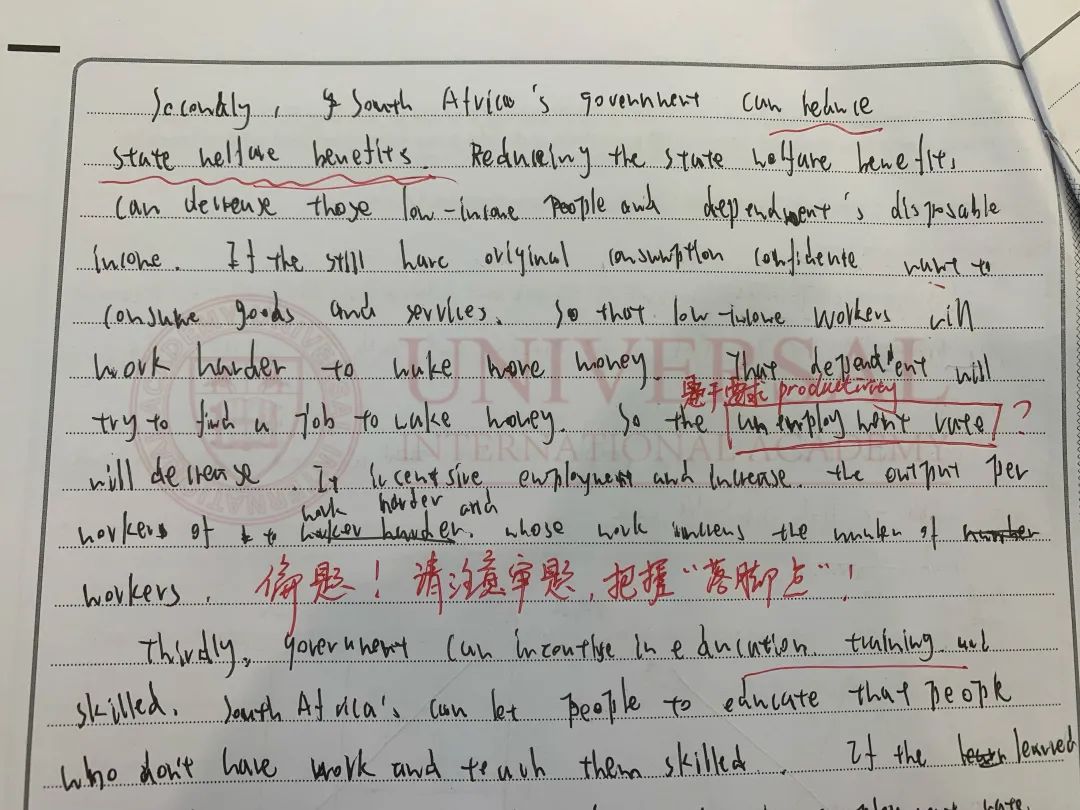 Secondly, South Africa's government can reduce
state welfare benefits. Reduceiny the state welfare benefits
can decrease those low-income people and dependent's disposable
income. If the still have original consumption confidente want to
consume goods and services. So that low-income workers will
work harder to make more money. That dependent will
基于需求 productivity
try to find a job to make money. So the unemployment rate ?
will decrease. It incentsive employment and increase the output per
work harder and
workers of to worker harder. whose work the number of number
workers. 偏题！请注意审题，把握“落脚点”！
Thirdly, government can incentise in education training and
skilled. South Africa's can let people to educate that people
who don't have work and teach them skilled. If the learned
rate.
UNIVERSAL
INTERNATIONAL ACADEMY